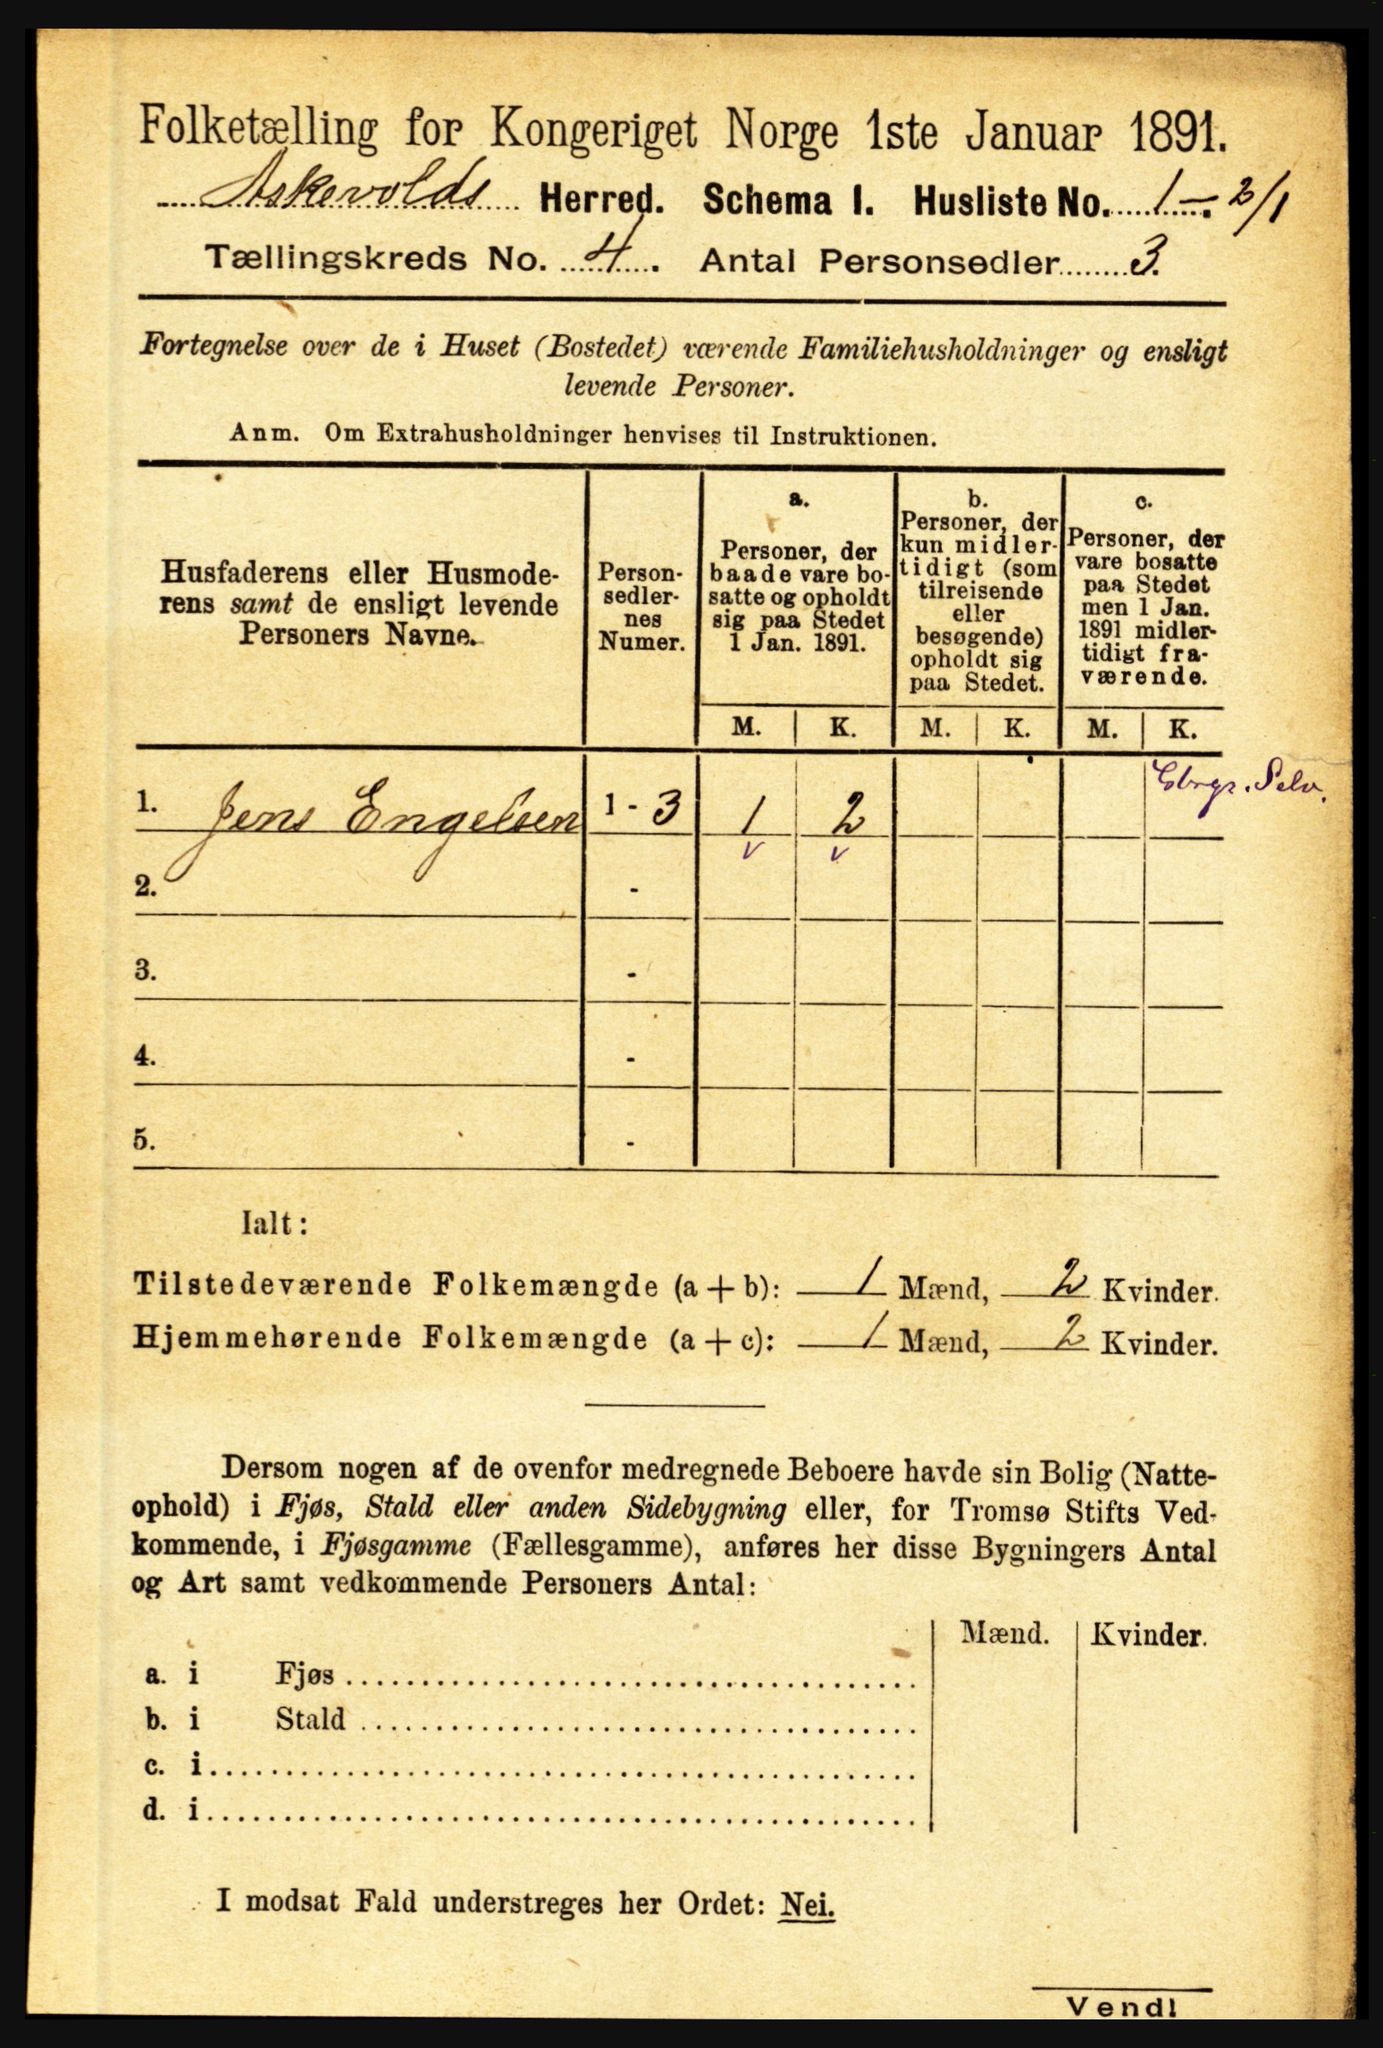 Folketælling for Kongeriget Norge 1ste Januar 1891.
Askevolds Herred. Schema I. Husliste No. 1 - 2/1
Tællingskreds No. 4. Antal Personsedler 3.
Fortegnelse over de i Huset (Bostedet) værende Familiehusholdninger og ensligt
levende Personer.
Anm. Om Extrahusholdninger henvises til Instruktionen.
Husfaderens eller Husmode-
rens samt de ensligt levende
Personers Navne.
Person-
sedler-
nes
Numer.
a.
Personer, der
baade vare bo-
satte og opholdt
sig paa Stedet
1 Jan. 1891.
b.
Personer, der
kun midler-
tidigt (som
tilreisende
eller
besøgende)
opholdt sig
paa Stedet.
c.
Personer, der
vare bosatte
paa Stedet
men 1 Jan.
1891 midler-
tidigt fra-
værende.
M. K. M. K. M. K.
1. Jens Engelsen 1 - 3 1 2 Selv.
v v
2. -
3. -
4. -
5. -
Ialt:
Tilstedeværende Folkemængde (a + b): 1 Mænd, 2 Kvinder.
Hjemmehørende Folkemængde (a + c): 1 Mænd, 2 Kvinder.
Dersom nogen af de ovenfor medregnede Beboere havde sin Bolig (Natte-
ophold) i Fjøs, Stald eller anden Sidebygning eller, for Tromsø Stifts Ved-
kommende, i Fjøsgamme (Fællesgamme), anføres her disse Bygningers Antal
og Art samt vedkommende Personers Antal:
Mænd. Kvinder.
a. i Fjøs
b. i Stald
c. i
d. i
I modsat Fald understreges her Ordet: Nei.
Vend!